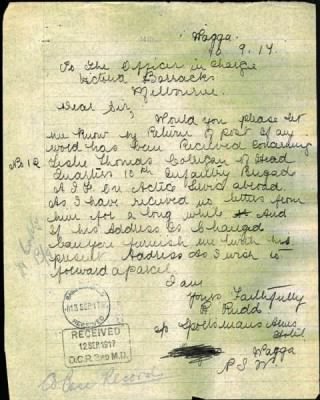 Wagga
10. 9. 17.
To The Officer in charge
Victoria Barracks
Melbourne.
Dear Sir,
Would you please let
me know by Return of post if any
word has been Received Concerning
Leslie Thomas of Head
Quarters 10th Infantry Brigade
A.I.F. on Active abroad.
As I have received no letters from
him for a long while And
if his Address is Changed
Can you furnish me with his
present Address As I wish to
forward a parcel
I am
Yours Faithfully
R. Rudd
c/o Sportsmans Arms
Hotel
Wagga
N S W
RECEIVED
12 SEP 1917
Base Record